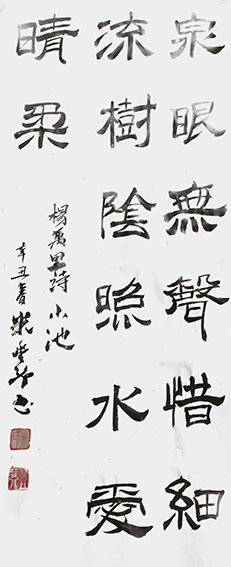 泉眼無聲惜細
流樹陰照水愛
晴柔
楊萬里詩小池
辛丑春